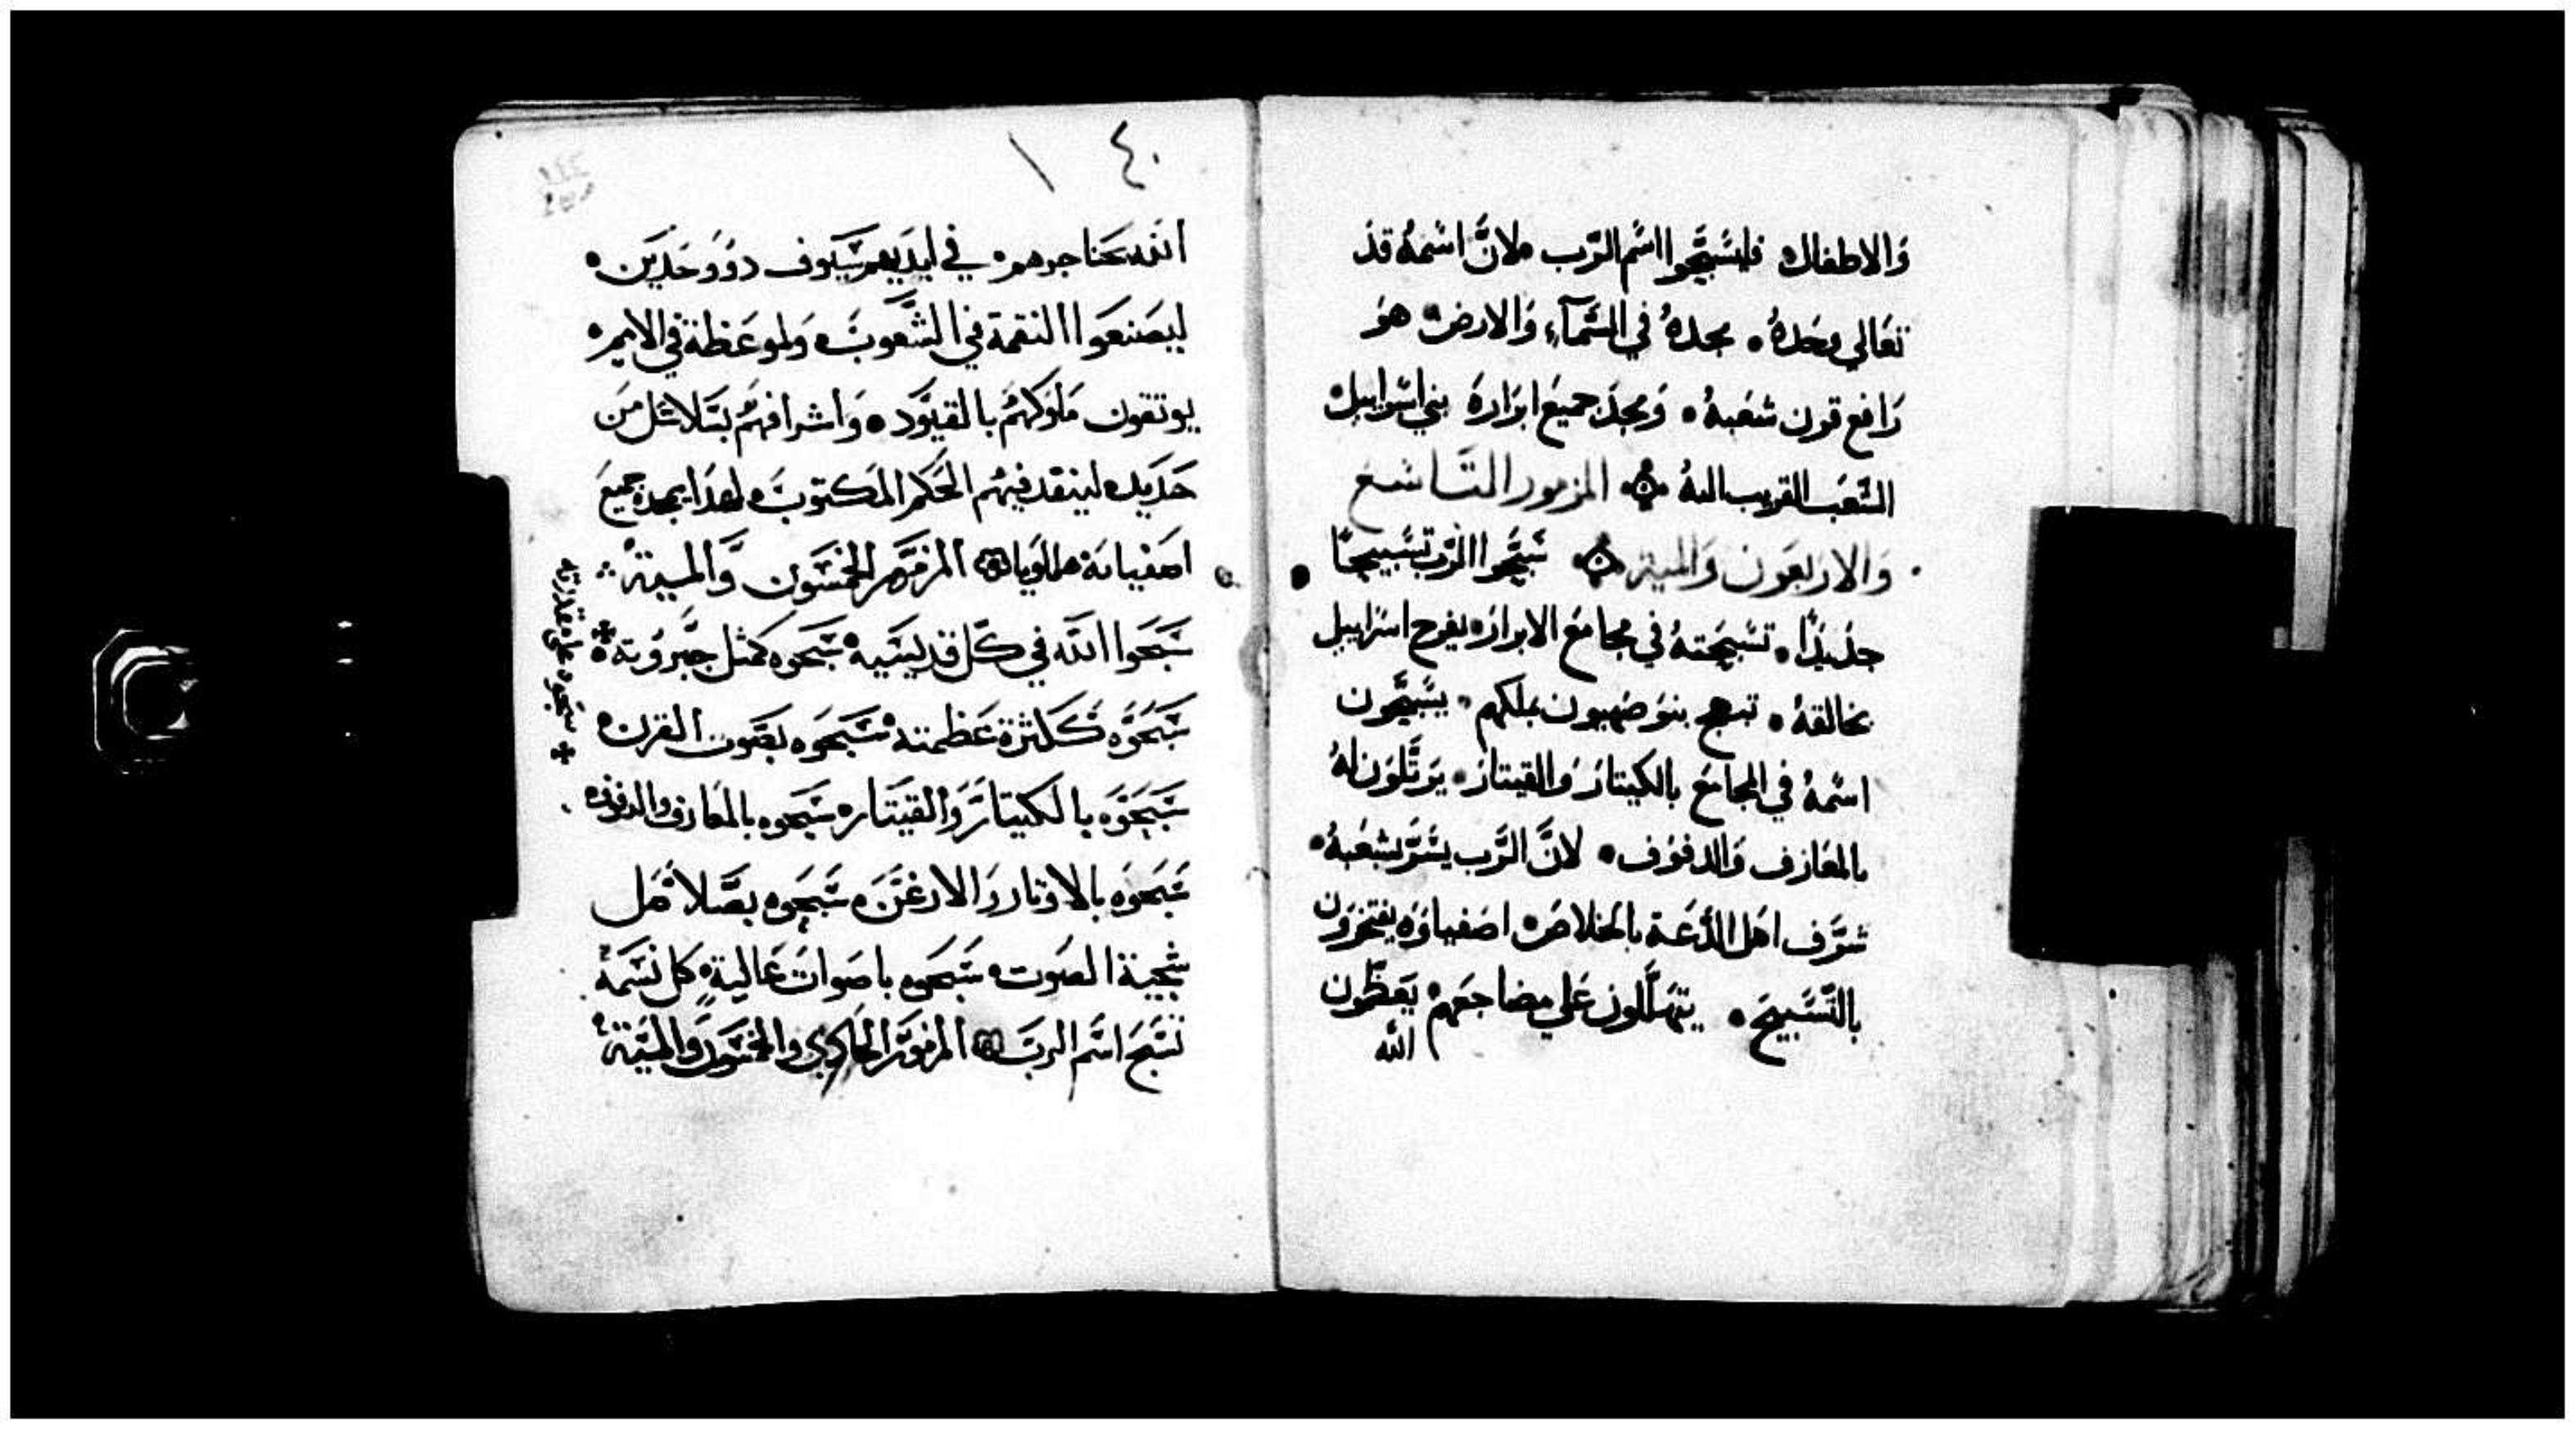 وَالاطفال فليُسَبِّحوا اسْم الرّب لانَّ اسْمهُ قدْ
تعَالي وحْدهُ مجدهُ في السَّمآءِ وَالارض هوَ
رَافع قرون شعْبهُ وَمجدَ جميعْ ابرَارهْ بني اسْراييل
الشَّعَب القريب اليهُ المزمور التَّاسْع
وَالاربعون وَالميه سَبِّحوا الرّب تسْبيحًا
جديدًا تسْبيحته في مجامع الابرار يفرح اسْراييل
بخالقهُ تبتهج بنوَ صَهيون بملكهم يسَبّحون
اسْمهُ في المجامع بالكيتار وَالقيتار يرَتّلون لهُ
بالمعَازف وَالدفوف لانَّ الرّب يسَرّ بشعْبهُ
شرّف اهل الدّعَة بالخلاص اصَفياوَه يفتخرون
بالتَّسْبيح يتهَلّلون عَلي مضاجعَهم يعَظّمون
الله
١٤٠
الله بحناجرهم في ايديهم سيوف ذوو حَدّين
ليصَنعَوا النقمة في الشّعوب وَلموعَظة في الامم
يوتقون ملوكهُم بالقيوَد وَاشرافهُم بسَلاسْل من
حَدَيد لينفد فيهُم الحَكم المكتوبَ لهذا مجد جميعَ
اصَفيانه هللويا المزمَور الخمسَون وَّالمية
سَبحَوا الله في كّل قديسَيه سَبحَوه كمثل جبَروته
سَبحَوه على مقدرته
سَبحَوَّه كَكثرة عَظمته سَبحَوه بصَوت القرن
سَبحَوَه بالكيتارَ وَالقيَتار سَبحَوه بالمعَازف والدفوف
سَبحَوه بالاوتار وَالارغَن سَبحَوه بصَلاصَل
شجية الصَوت سَبحَوه باصَوات عَالية كل نسَمة
تسَبحَ اسَم الربَ المزموَر الحَادي والخمسَون وَالميَة